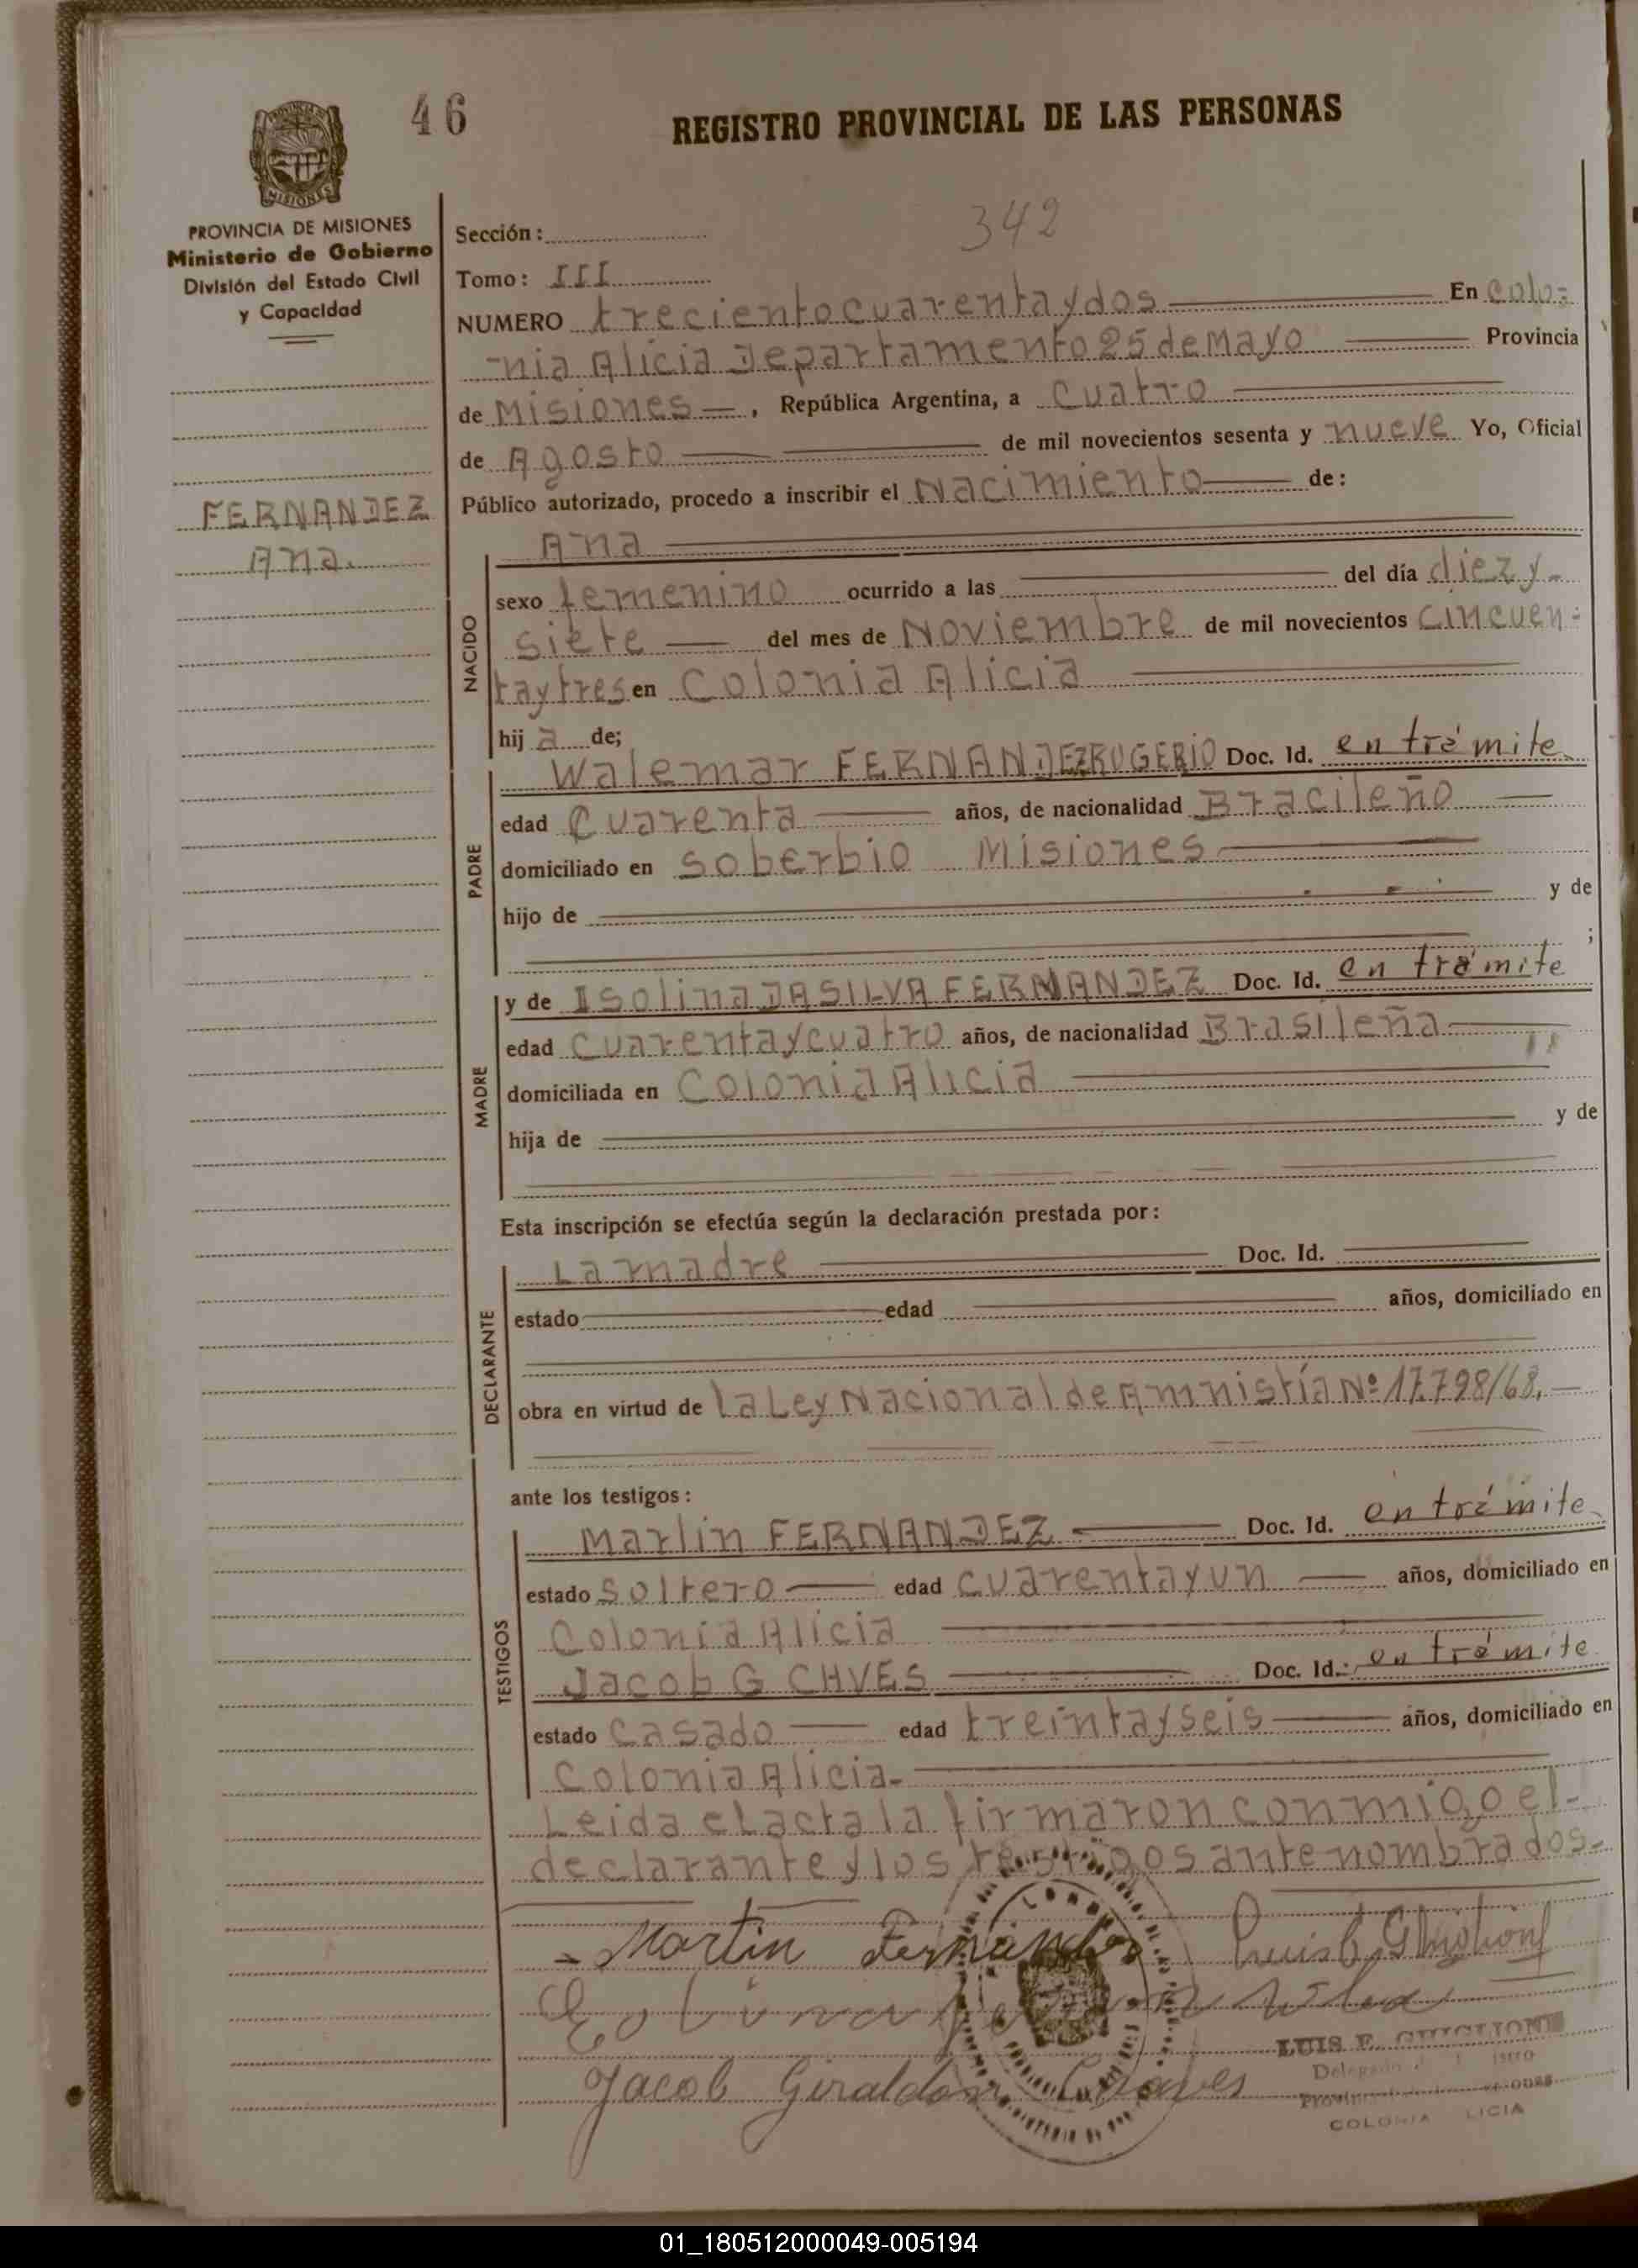 46
REGISTRO PROVINCIAL DE LAS PERSONAS
PROVINCIA DE MISIONES
MISIONES
PROVINCIA DE MISIONES
Ministerio de Gobierno
División del Estado Civil
y Capacidad
FERNANDEZ
Ana.
342
Sección:
Tomo: III
NUMERO trecientocuarentaydos En Colo-
-nia Alicia Departamento 25 de Mayo Provincia
de Misiones, República Argentina, a Cuatro
de Agosto de mil novecientos sesenta y nueve Yo, Oficial
Público autorizado, procedo a inscribir el Nacimiento de:
Ana
NACIDO
sexo femenino ocurrido a las del día diez y-
siete del mes de Noviembre de mil novecientos cincuen-
taytres en Colonia Alicia
hij a de;
PADRE
Walemar FERNANDEZ ROGERIO Doc. Id. en trámite
edad Cuarenta años, de nacionalidad Bracileño
domiciliado en Soberbio Misiones
hijo de y de
;
MADRE
y de Isolina DA SILVA FERNANDEZ Doc. Id. en trámite
edad Cuarentaycuatro años, de nacionalidad Brasileña
domiciliada en Colonia Alicia
hija de y de
Esta inscripción se efectúa según la declaración prestada por:
DECLARANTE
La madre Doc. Id.
estado edad años, domiciliado en
obra en virtud de la Ley Nacional de Amnistía Nº 17.798/68.
ante los testigos:
TESTIGOS
Martin FERNANDEZ Doc. Id. en trámite
estado Soltero edad cuarentayun años, domiciliado en
Colonia Alicia
Jacob G CHVES Doc. Id.: en trámite
estado Casado edad treintayseis años, domiciliado en
Colonia Alicia.
Leida el acta la firmaron conmigo el-
declarante y los testigos ante nombrados-
Martin Fernández
Jacob Giraldo Chaves
LUIS E. GHIGLIONE
COLONIA ALICIA
01_180512000049-005194